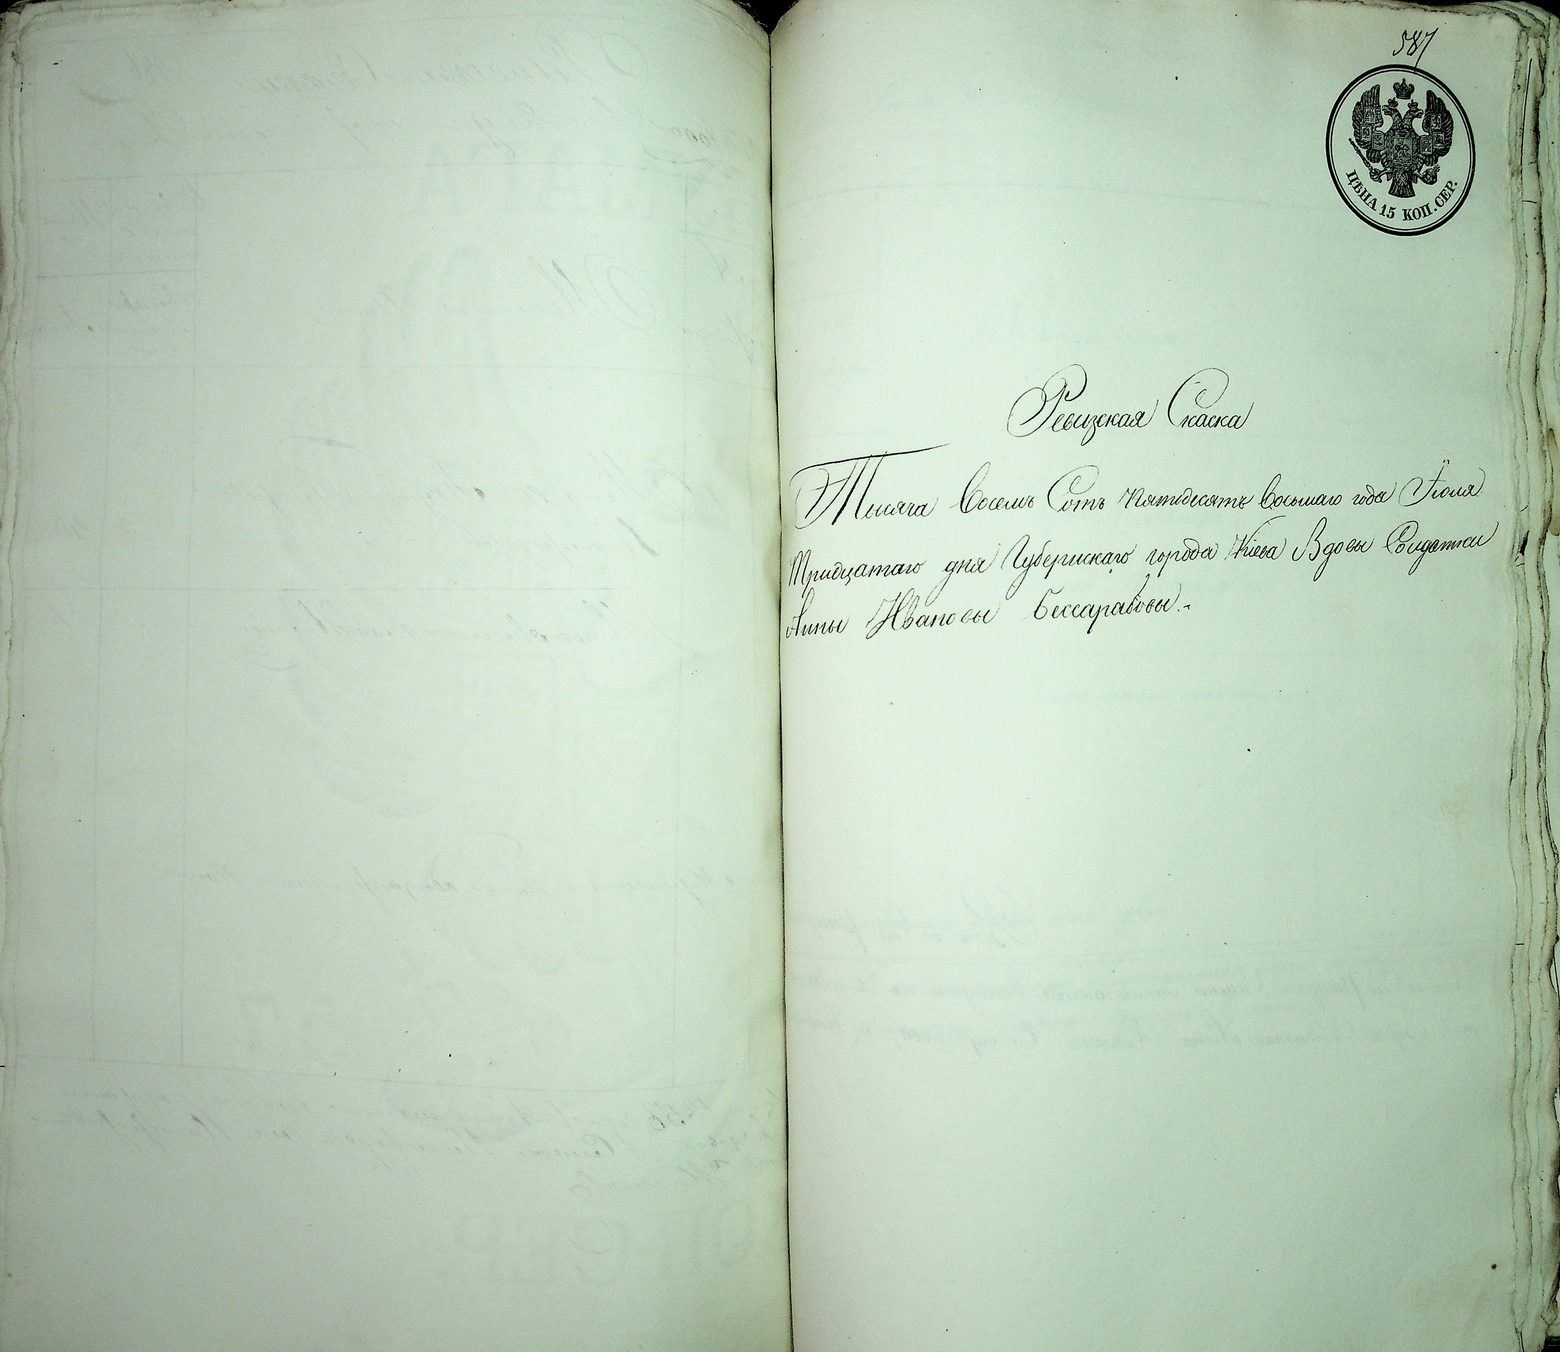 587
ЦѢНА 15 КОП. СЕР.
Ревизская Скаска
Тысяча Восемь Сотъ Пятьдесятъ Восьмаго года Іюля
Тридцатаго дня Губернскаго города Кіева Вдовы Солдатки
Анны Ивановы Бессарабовы.-